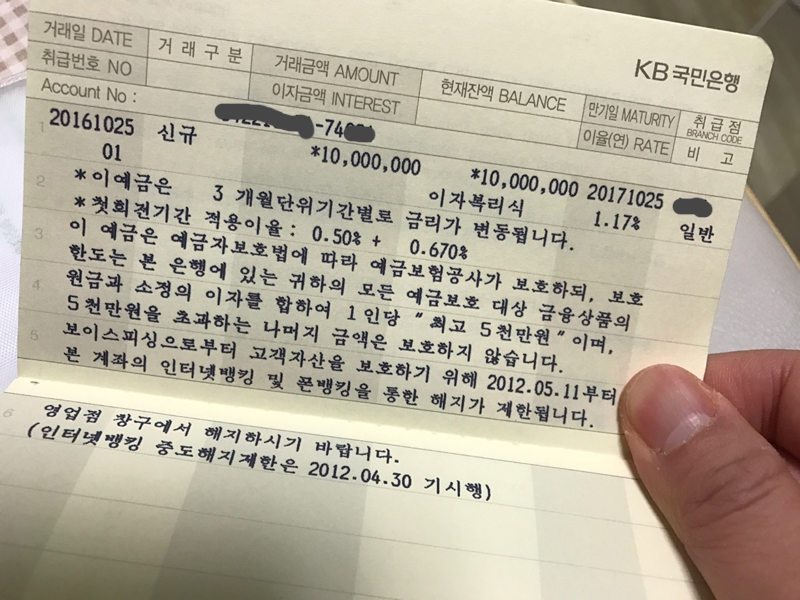 KB국민은행
거래일 DATE 거래구분 거래금액 AMOUNT 현재잔액 BALANCE 만기일 MATURITY 취급점 BRANCH CODE
취급번호 NO 이자금액 INTEREST 이율(연) RATE 비 고
Account No :
-74
1 20161025 신규 *10,000,000 *10,000,000 20171025
01 이자복리식 1.17% 일반
2 *이예금은 3 개월단위기간별로 금리가 변동됩니다.
*첫회전기간 적용이율: 0.50% + 0.670%
3 이 예금은 예금자보호법에 따라 예금보험공사가 보호하되, 보호
한도는 본 은행에 있는 귀하의 모든 예금보호 대상 금융상품의
4 원금과 소정의 이자를 합하여 1인당 "최고 5천만원"이며,
5천만원을 초과하는 나머지 금액은 보호하지 않습니다.
5 보이스피싱으로부터 고객자산을 보호하기 위해 2012.05.11부터
본 계좌의 인터넷뱅킹 및 폰뱅킹을 통한 해지가 제한됩니다.
6 영업점 창구에서 해지하시기 바랍니다.
(인터넷뱅킹 중도해지제한은 2012.04.30 기시행)